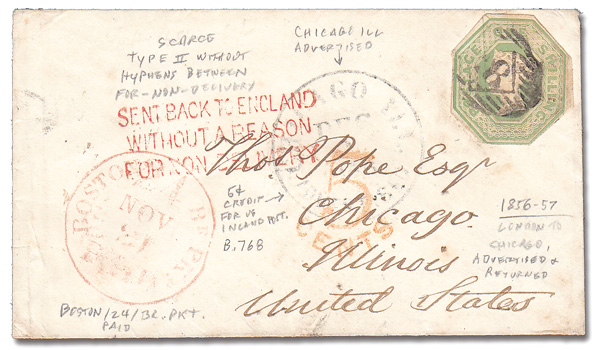 SCARCE
TYPE II WITHOUT
HYPHENS BETWEEN
FOR-NON-DELIVERY
CHICAGO ILL
ADVERTISED
SENT BACK TO ENGLAND
WITHOUT A REASON
FOR NON DELIVERY
BOSTON BR. PKT
NOV
21
5
CENTS
Thos Pope Esqr
Chicago
Illinois
United States
5¢
CREDIT
FOR US
INLAND POST.
B.768
1856-57
LONDON TO
CHICAGO,
ADVERTISED &
RETURNED
BOSTON/24/BR. PKT.
PAID